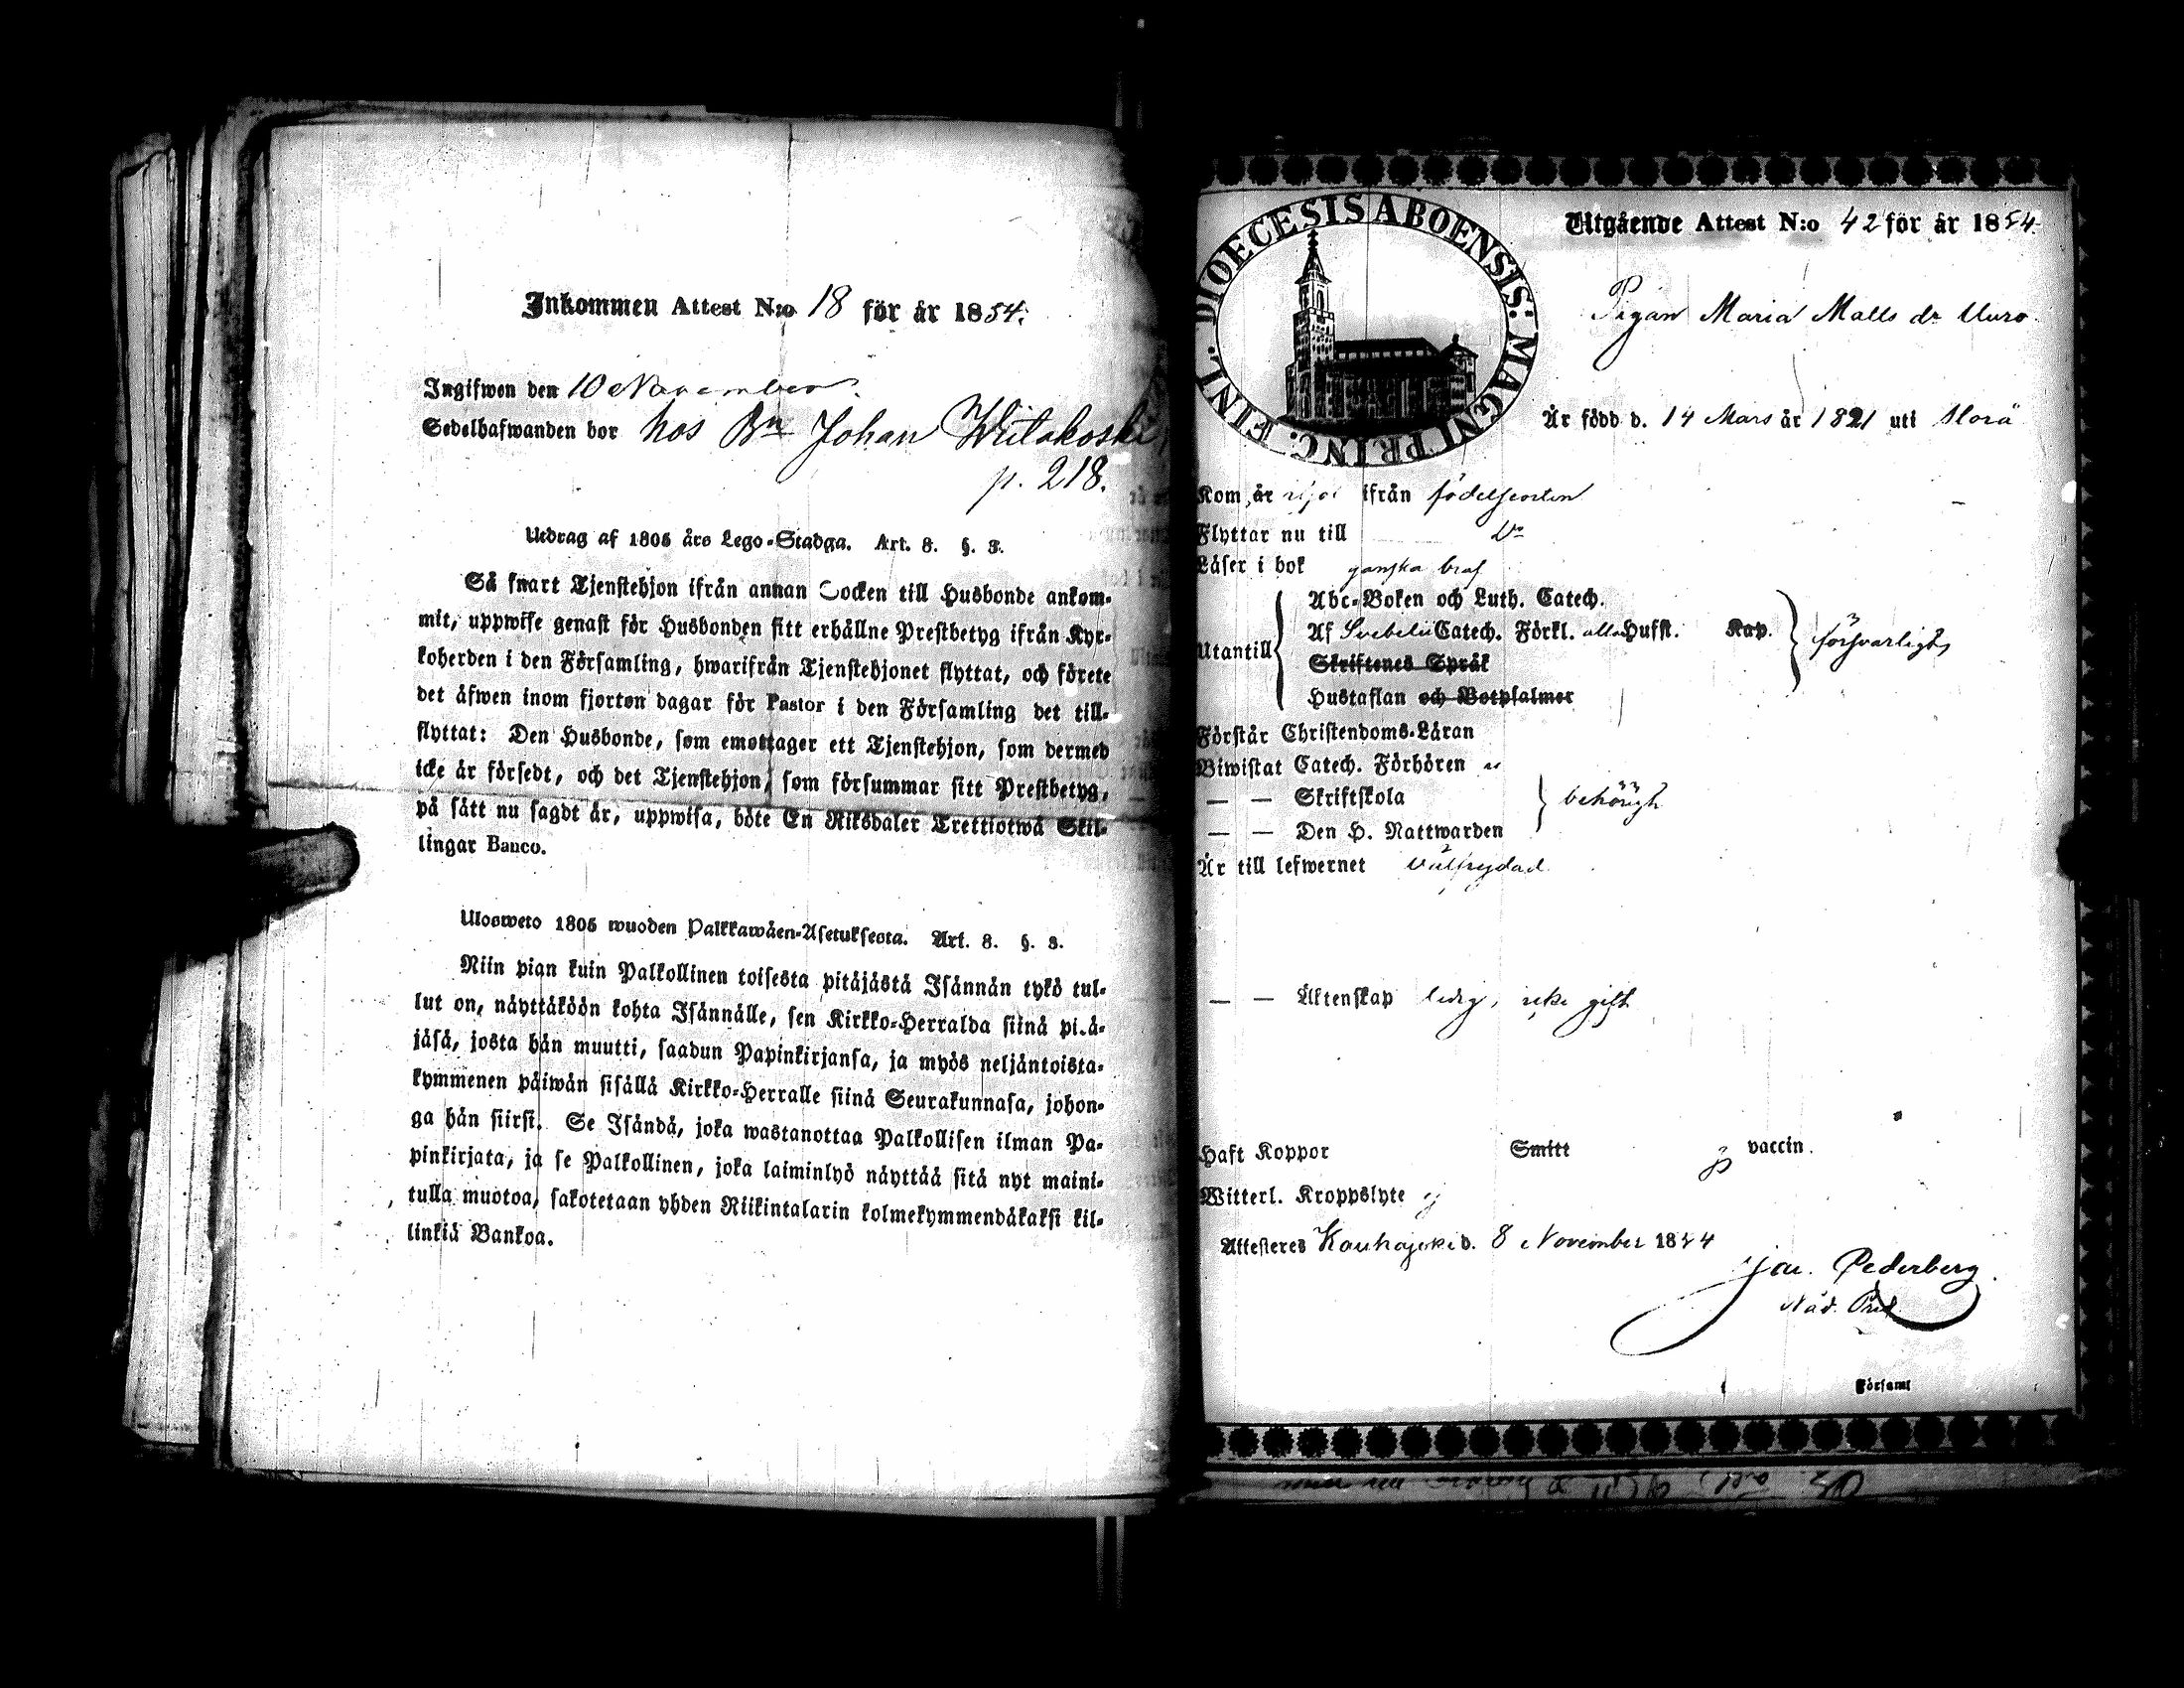 Inkommen Attest N:o 18 för år 1854.
Ingifwen den 10 November.
Sedelhafwanden bor hos Bn Johan
p. 218.
Utdrag af 1805 års Lego-Stadga. Art. 8. §. 3.
Så snart Tjenstehjon ifrån annan Socken till Husbonde ankom-
mit, uppwise genast för Husbonden sitt erhållne Prestbetyg ifrån Kyr-
koherden i den Församling, hwarifrån Tjenstehjonet flyttat, och förete
det äfwen inom fjorton dagar för Pastor i den Församling det till-
flyttat: Den Husbonde, som emottager ett Tjenstehjon, som dermed
icke är försedt, och det Tjenstehjon, som försummar sitt Prestbetyg,
på sätt nu sagdt är, uppwisa, böte En Riksdaler Trettiotwå Skil-
lingar Banco.
Ulosweto 1805 wuoden Palkkawäen-Asetuksesta. Art. 8. §. 3.
Niin pian kuin Palkollinen toisesta pitäjästä Isännän tykö tul-
lut on, näyttäköön kohta Isännälle, sen Kirkko-Herralda siinä pitä-
jäsä, josta hän muutti, saadun Papinkirjansa, ja myös neljäntoista-
kymmenen päiwän sisällä Kirkko-Herralle siinä Seurakunnasa, johon-
ga hän siirsi. Se Isändä, joka wastanottaa Palkollisen ilman Pa-
pinkirjata, ja se Palkollinen, joka laiminlyö näyttää sitä nyt maini-
tulla muotoa, sakotetaan yhden Riikintalarin kolmekymmendäkaksi kil-
linkiä Bankoa.
DIOECESIS ABOENSIS: MAGNI PRINC. FINL.
Utgående Attest N:o 42 för år 1854.
Pigan Maria Matts dr Uuro
Är född d. 14 Mars år 1821 uti Storå
Kom år ifrån födelseorten
Flyttar nu till Do
Läser i bok ganska braf
Utantill
Abc-Boken och Luth. Catech.
Af Svebelii Catech. Förkl. alla Hufst. Kap.
försvarligt
Skriftenes Språk
Hustaflan och Botpsalmer
Förstår Christendoms-Läran
Biwistat Catech. Förhören
— — Skriftskola
behörigt
— — Den H. Nattwarden
Är till lefwernet välfrejdad
— — Äktenskap ledig, icke gift
Haft Koppor Smitt vaccin.
Witterl. Kroppslyte ej
Attesteres Kauhajoki d. 8 November 1854
Cederberg
Församl